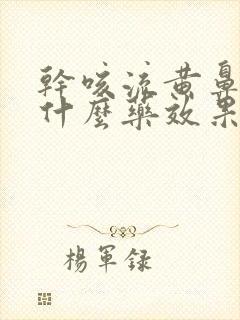 幹咳流黄鼻
什麼藥效果
楊軍録